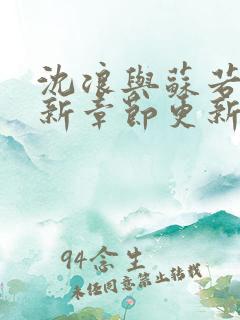 沈浪與蘇若
新章節更新
94念生
未经同意禁止转载